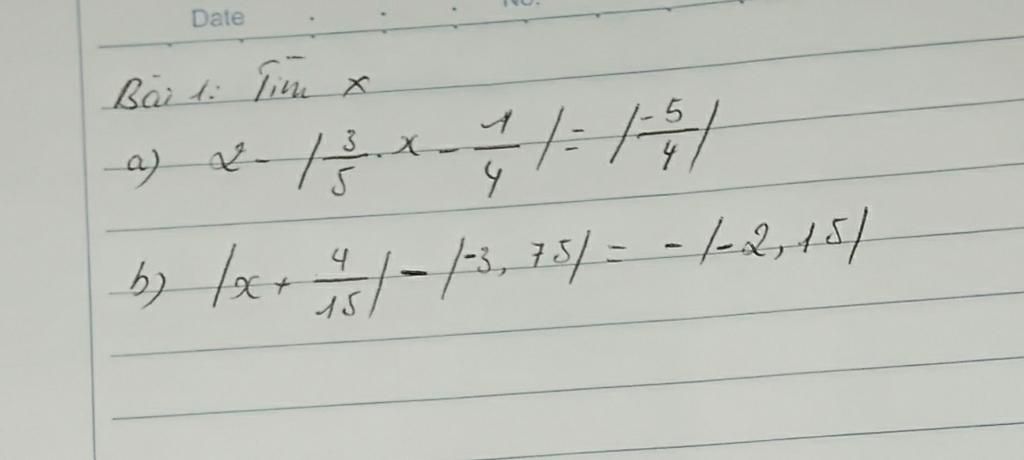 Date No.
Bài 1: Tìm x
a) 2 - |3/5 . x - 1/4| = |-5/4|
b) |x + 4/15| - |-3,75| = - |-2,15|